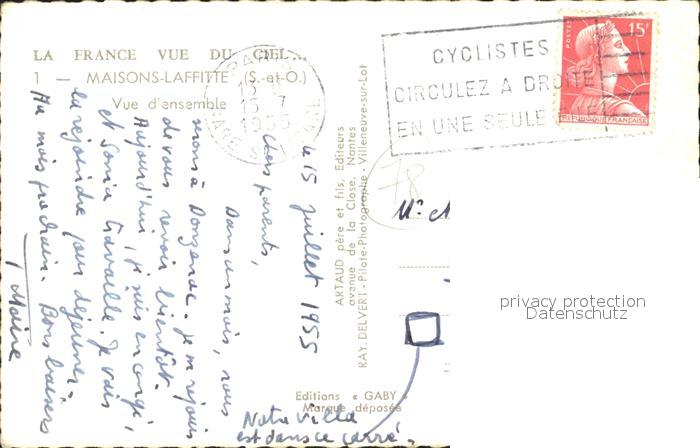 LA FRANCE VUE DU CIEL...
1 — MAISONS-LAFFITTE (S.-et-O.)
Vue d'ensemble
PARIS
15 - 7
1955
GARE
CYCLISTES
CIRCULEZ A DROITE
EN UNE SEULE
POSTES
15F
REPUBLIQUE FRANÇAISE
le 15 juillet 1955
Chers parents,
Dans un mois, nous
serons à Donzenac. Je me réjouis
de vous revoir bientôt.
Aujourd'hui, je suis en congé,
et Sonia travaille. Je vais
la rejoindre pour déjeuner.
Au mois prochain. Bons baisers
ARTAUD père et fils, Editeurs
avenue de la Close, Nantes
RAY. DELVERT - Pilote-Photographe - Villeneuve-sur-Lot
78
Editions « GABY »
Marque déposée
Notre villa
est dans ce carré.
privacy protection
Datenschutz